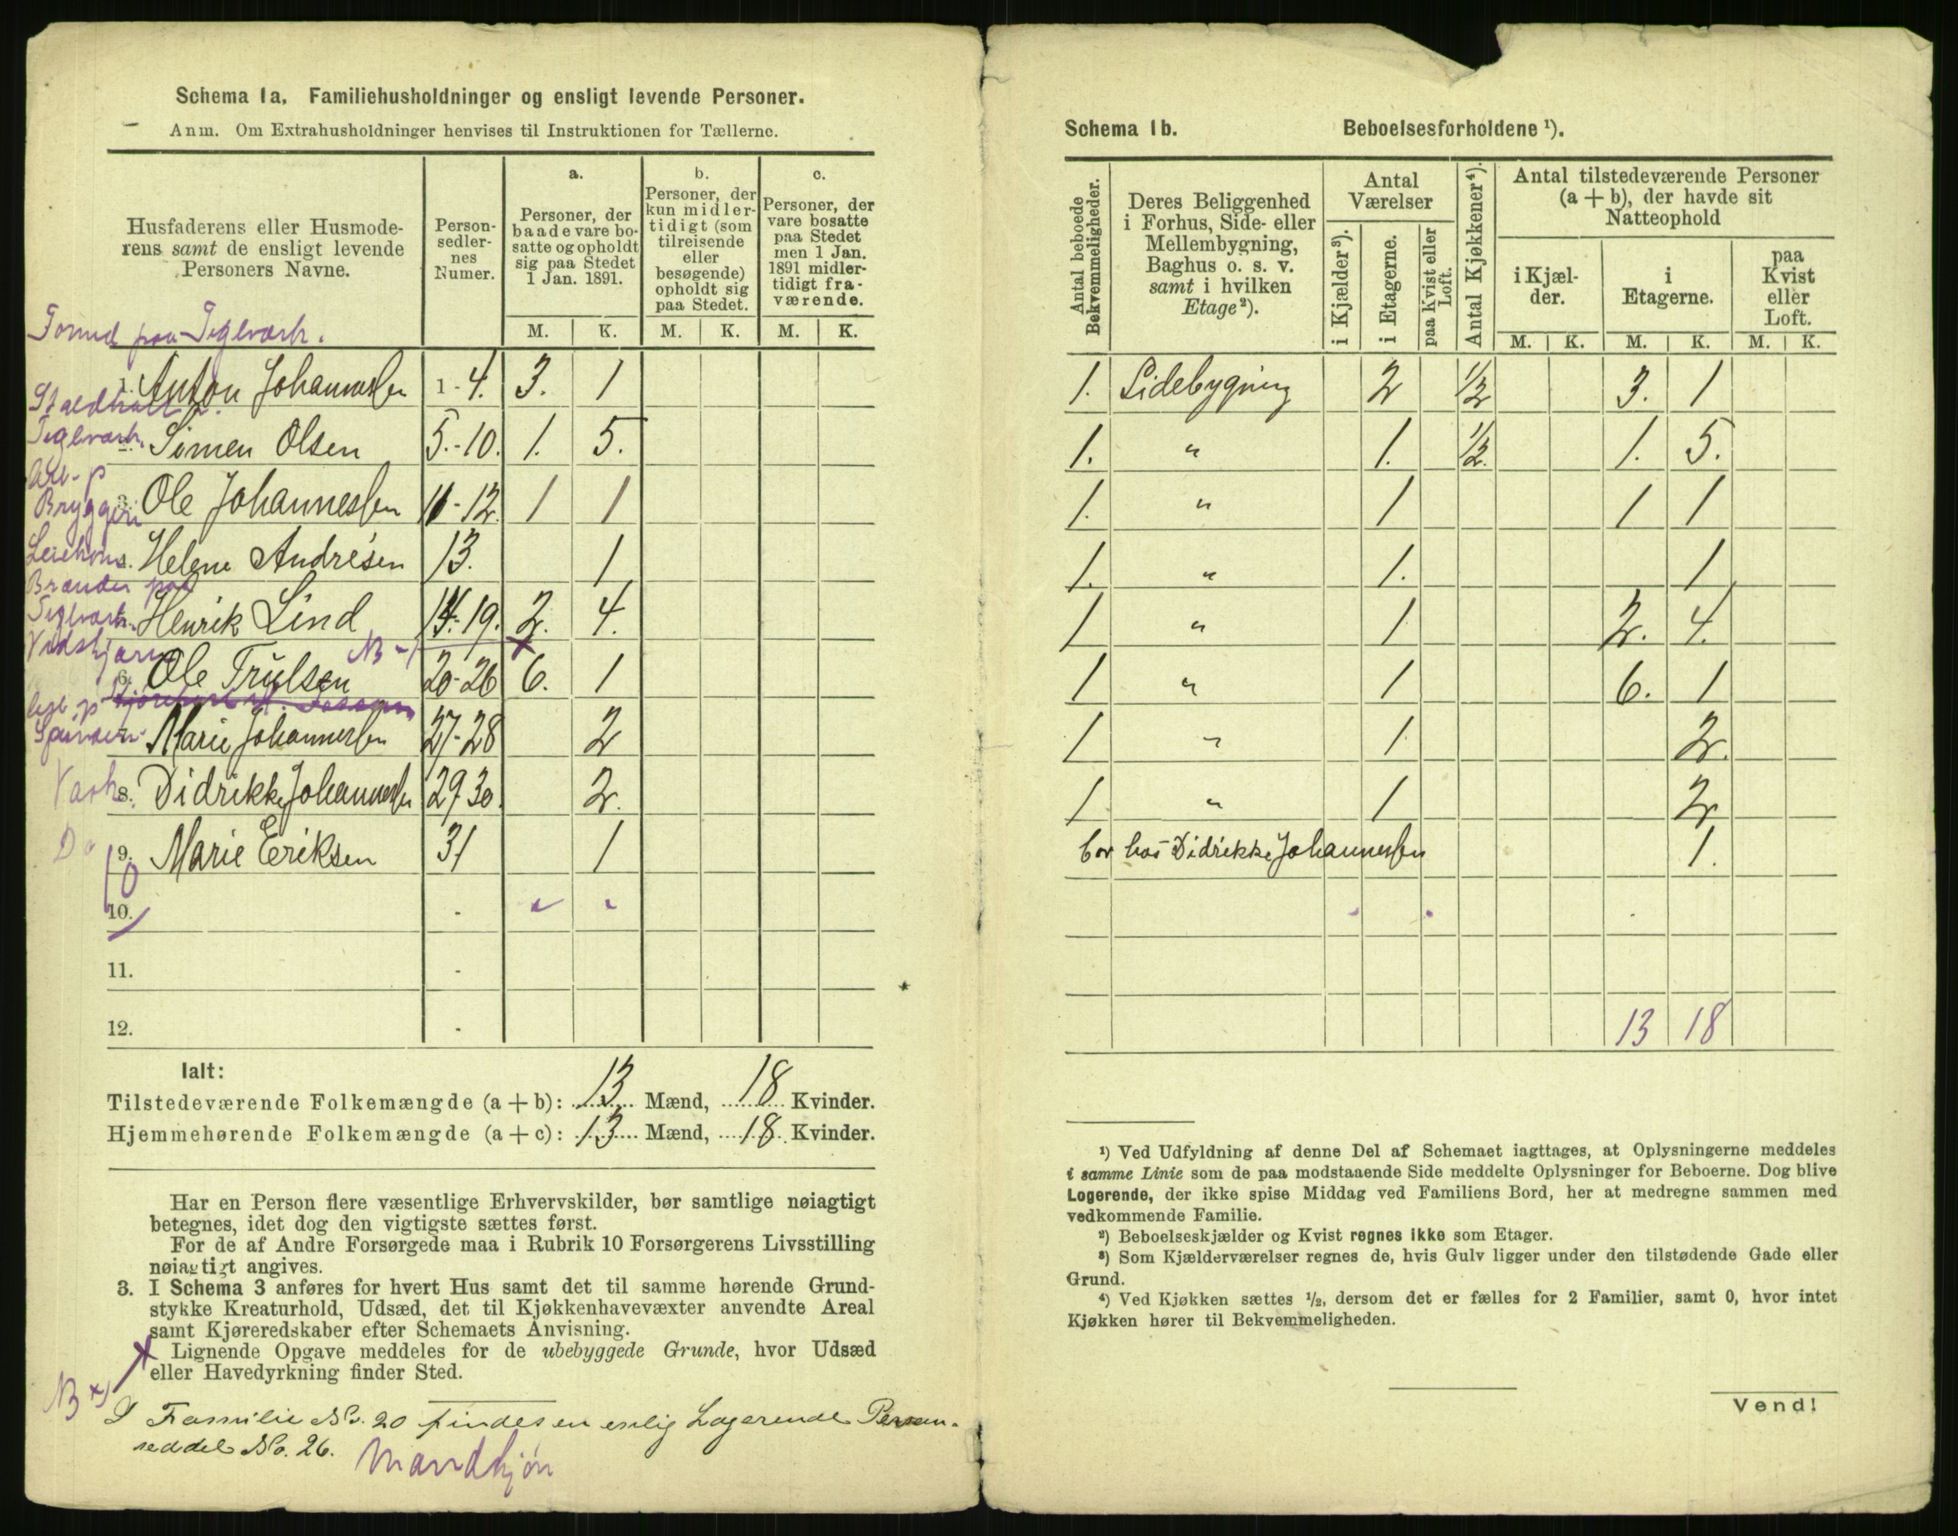 Schema 1a. Familiehusholdninger og ensligt levende Personer.
Anm. Om Extrahusholdninger henvises til Instruktionen for Tællerne.
Husfaderens eller Husmode-
rens samt de ensligt levende
Personers Navne.
Person-
sedler-
nes
Numer.
a.
Personer, der
baade vare bo-
satte og opholdt
sig paa Stedet
1 Jan. 1891.
b.
Personer, der
kun midler-
tidigt (som
tilreisende
eller
besøgende)
opholdt sig
paa Stedet.
c.
Personer, der
vare bosatte
paa Stedet
men 1 Jan.
1891 midler-
tidigt fra-
værende.
M. K. M. K. M. K.
Formd paa Teglværk.
1. Anton Johannessen 1-4. 3. 1
Staldkarl
Teglværk. Simen Olsen 5.-10. 1. 5.
Arb. p
Bryggeri 3. Ole Johannessen 11-12. 1 1
Helene Andrésen 13. 1
Brænder paa
Teglværk. Henrik Lind 14-19. 2. 4.
NB
6. Ole Trulsen 20-26 6. 1
Marie Johannessen 27-28 2
Vask 8. Didrikke Johannessen 29-30. 2.
Do 9. Marie Eriksen 31 1
10.
11.
12.
Ialt:
Tilstedeværende Folkemængde (a + b): 13 Mænd, 18 Kvinder.
Hjemmehørende Folkemængde (a + c): 13 Mænd, 18 Kvinder.
Har en Person flere væsentlige Erhvervskilder, bør samtlige nøiagtigt
betegnes, idet dog den vigtigste sættes først.
For de af Andre Forsørgede maa i Rubrik 10 Forsørgerens Livsstilling
nøiagtigt angives.
3. I Schema 3 anføres for hvert Hus samt det til samme hørende Grund-
stykke Kreaturhold, Udsæd, det til Kjøkkenhavevæxter anvendte Areal
samt Kjøreredskaber efter Schemaets Anvisning.
Lignende Opgave meddeles for de ubebyggede Grunde, hvor Udsæd
eller Havedyrkning finder Sted.
NB x) I Familie No. 20 findes en enslig Logerende Person-
seddel No. 26. Mandkjøn
Schema 1b. Beboelsesforholdene ¹).
Antal beboede
Bekvemmeligheder.
Deres Beliggenhed
i Forhus, Side- eller
Mellembygning,
Baghus o. s. v.
samt i hvilken
Etage ²).
Antal
Værelser
i Kjælder ³).
i Etagerne.
paa Kvist eller
Loft.
Antal Kjøkkener ⁴).
Antal tilstedeværende Personer
(a + b), der havde sit
Natteophold
i Kjæl-
der.
i
Etagerne.
paa
Kvist
eller
Loft.
M. K. M. K. M. K.
1. Sidebygning 2 1/2 3. 1
1. " 1. 1/2. 1. 5.
1. " 1 1 1
1. " 1. 1
1 " 1 2. 4.
1 " 1 6. 1
1 " 1 2
1 " 1 2
bor hos Didrikke Johannessen 1.
13 18
¹) Ved Udfyldning af denne Del af Schemaet iagttages, at Oplysningerne meddeles
i samme Linie som de paa modstaaende Side meddelte Oplysninger for Beboerne. Dog blive
Logerende, der ikke spise Middag ved Familiens Bord, her at medregne sammen med
vedkommende Familie.
²) Beboelseskjælder og Kvist regnes ikke som Etager.
³) Som Kjælderværelser regnes de, hvis Gulv ligger under den tilstødende Gade eller
Grund.
⁴) Ved Kjøkken sættes ½, dersom det er fælles for 2 Familier, samt 0, hvor intet
Kjøkken hører til Bekvemmeligheden.
Vend!